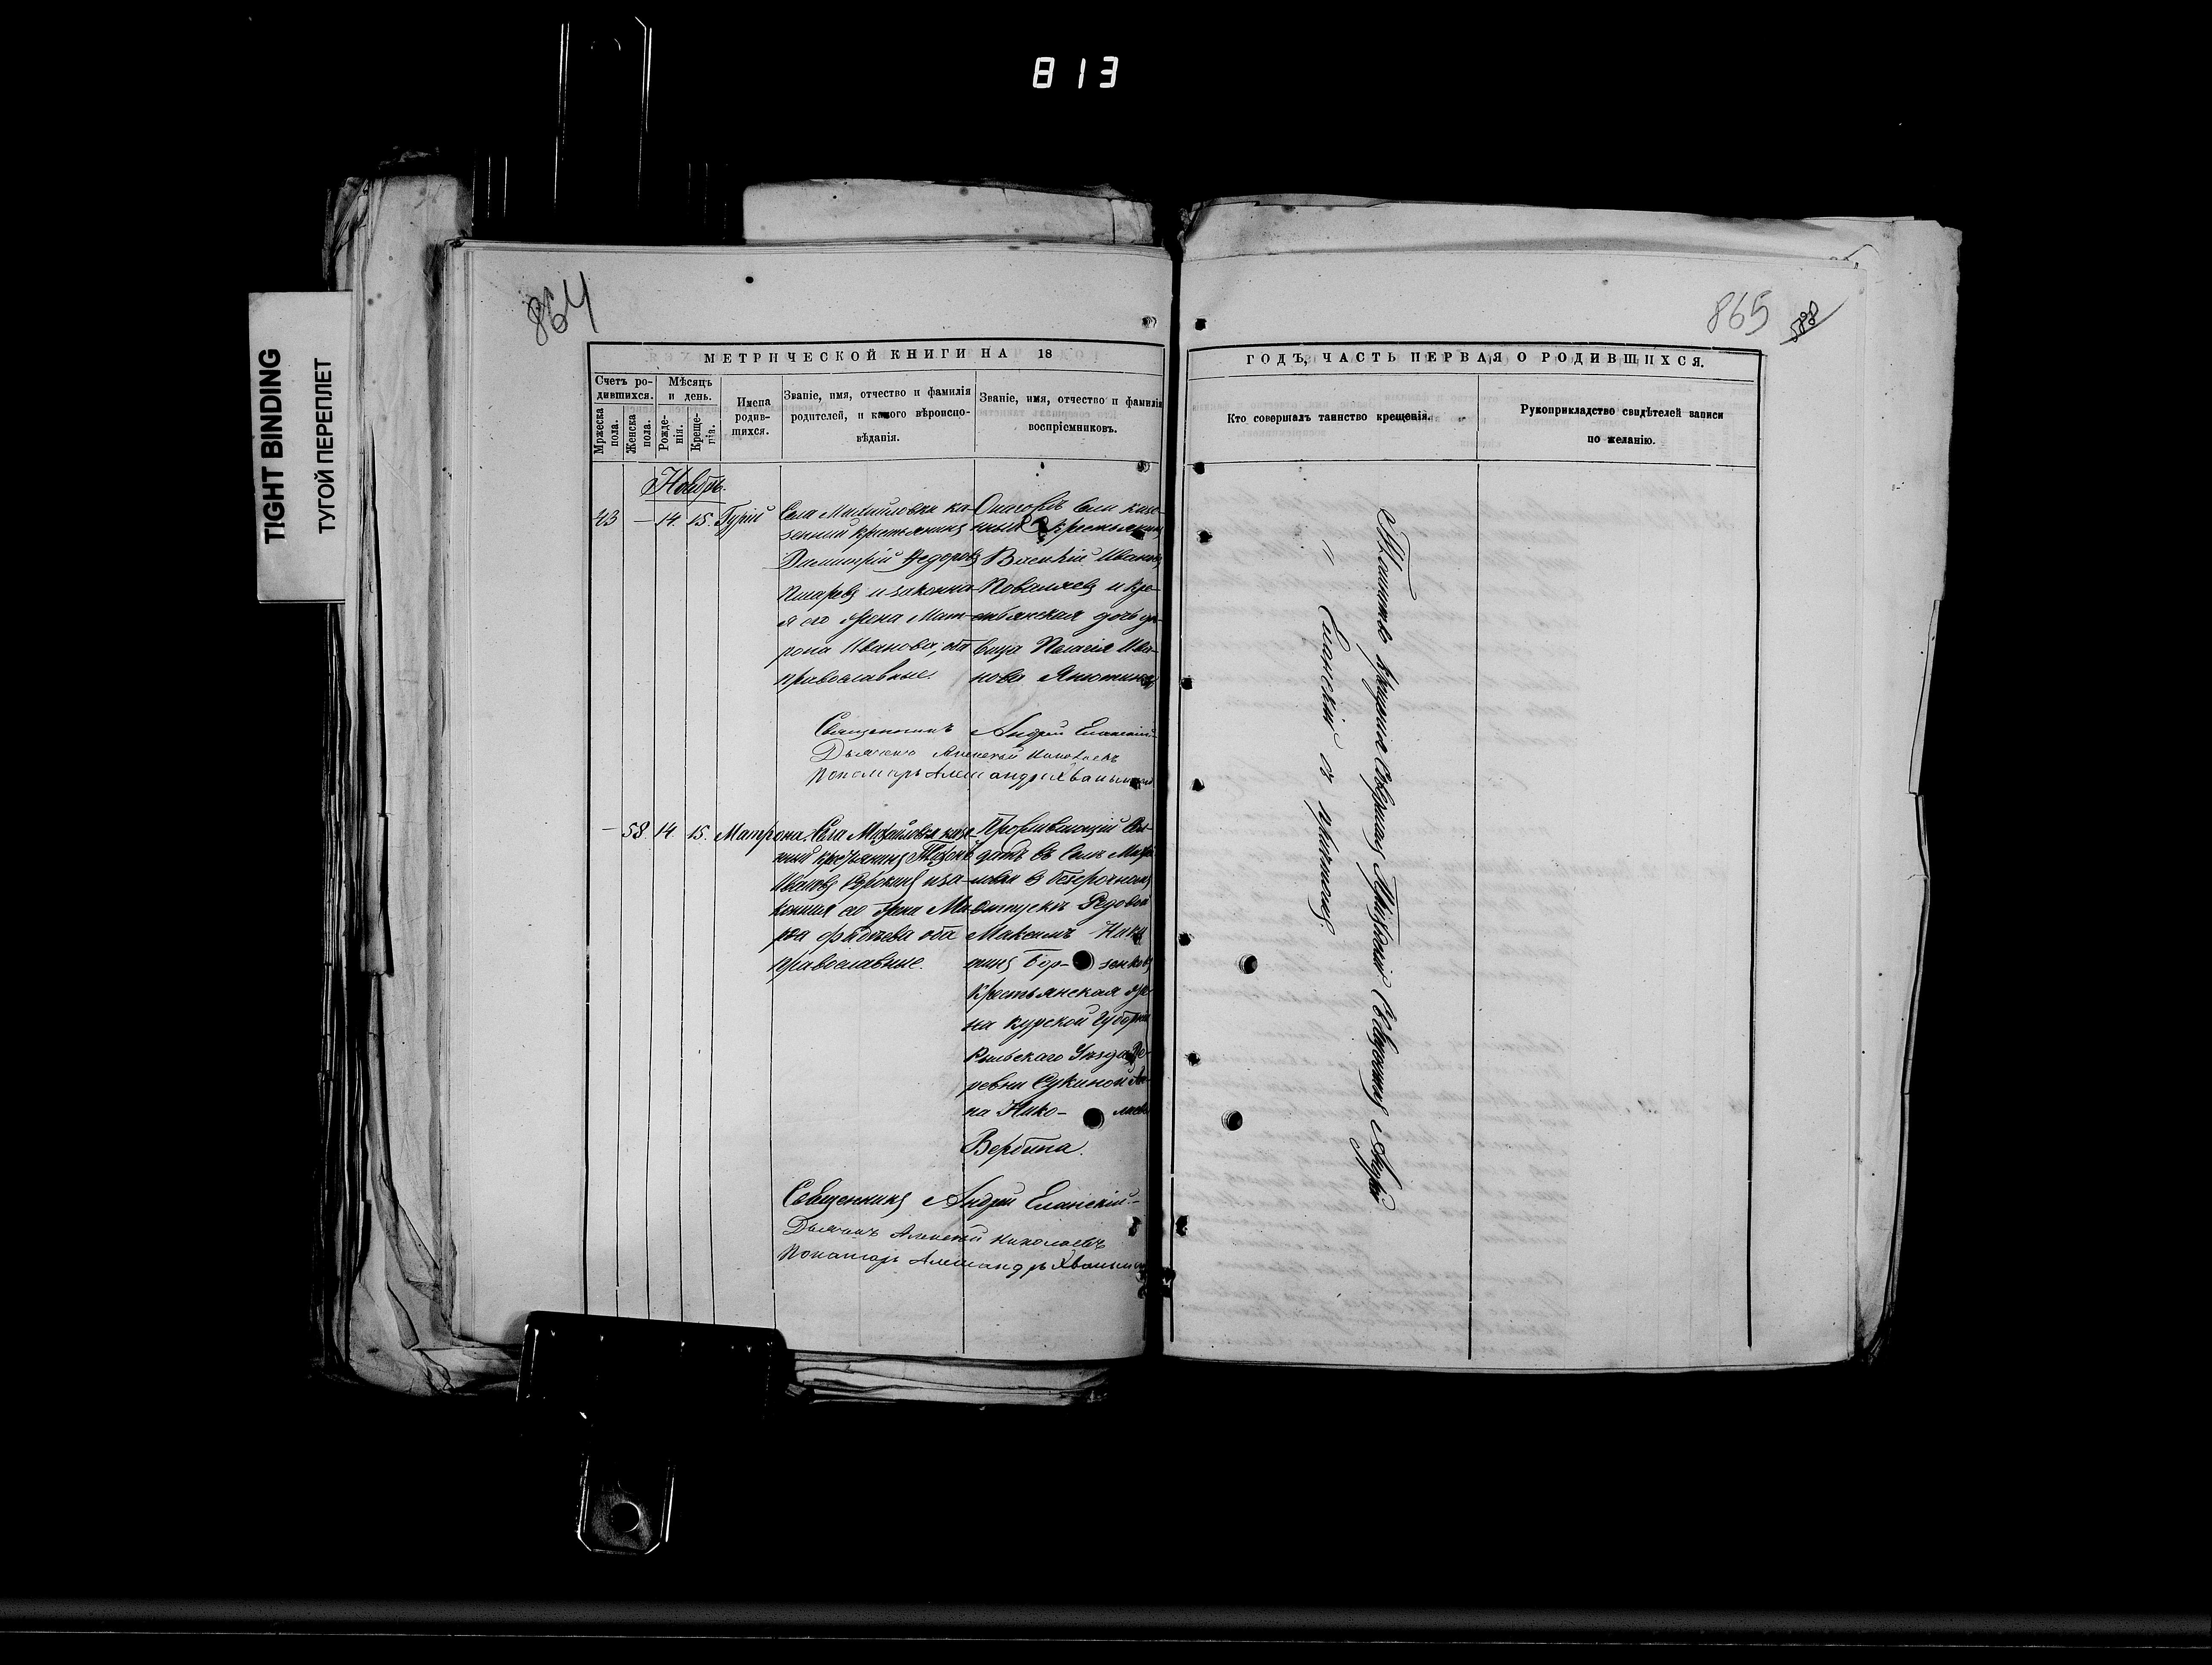 813
TIGHT BINDING
ТУГОЙ ПЕРЕПЛЕТ
864
МЕТРИЧЕСКОЙ КНИГИ НА 18
Счетъ ро-
дившихся.
Мѣсяцъ
и день.
Мужеска
пола.
Женска
пола.
Рожде-
нія.
Креще-
нія.
Имена
родив-
шихся.
Званіе, имя, отчество и фамилія
родителей, и какого вѣроиспо-
вѣданія.
Званіе, имя, отчество и фамилія
воспріемниковъ.
Ноябрь.
43 — 14. 15. Гурій
Села Михайловки ка-
зенный крестьянинъ
Димитрій Федоровъ
и законна-
я его жена Мат-
рона Иванова, оба
православные.
села казе-
нный крестьянинъ
Василій Ивановъ
и кре-
стьянская дочь дѣ-
вица Пелагія Ива-
нова
Священникъ Андрей Еланскій
Дьяконъ Алексѣй Николаевъ
Пономарь Александръ
— 58. 14 15. Матрона.
Села Михайловки казе-
нный крестьянинъ
Ивановъ Сорокинъ и за-
конная его жена Ма-
рѳа оба
православные.
Проживающій сол-
датъ въ селѣ Миха-
въ безсрочномъ
отпускѣ Рядовой
Максимъ Ники
тинъ Бор-зенковъ
Крестьянская же-
на Курской Губерніи
Рыльскаго Уѣзда Де-
ревни Сухиной Ан-
на Нико-лаева
Вербина.
Священникъ Андрей Еланскій
Дьяконъ Алексѣй Николаевъ
Пономарь Александръ
865
588
ГОДЪ, ЧАСТЬ ПЕРВАЯ О РОДИВШИХСЯ.
Кто совершалъ таинство крещенія.
Рукоприкладство свидѣтелей записи
по желанію.
Таинство крещенія совершалъ Приходскій Священникъ Андрей
Еланскій съ причтомъ.